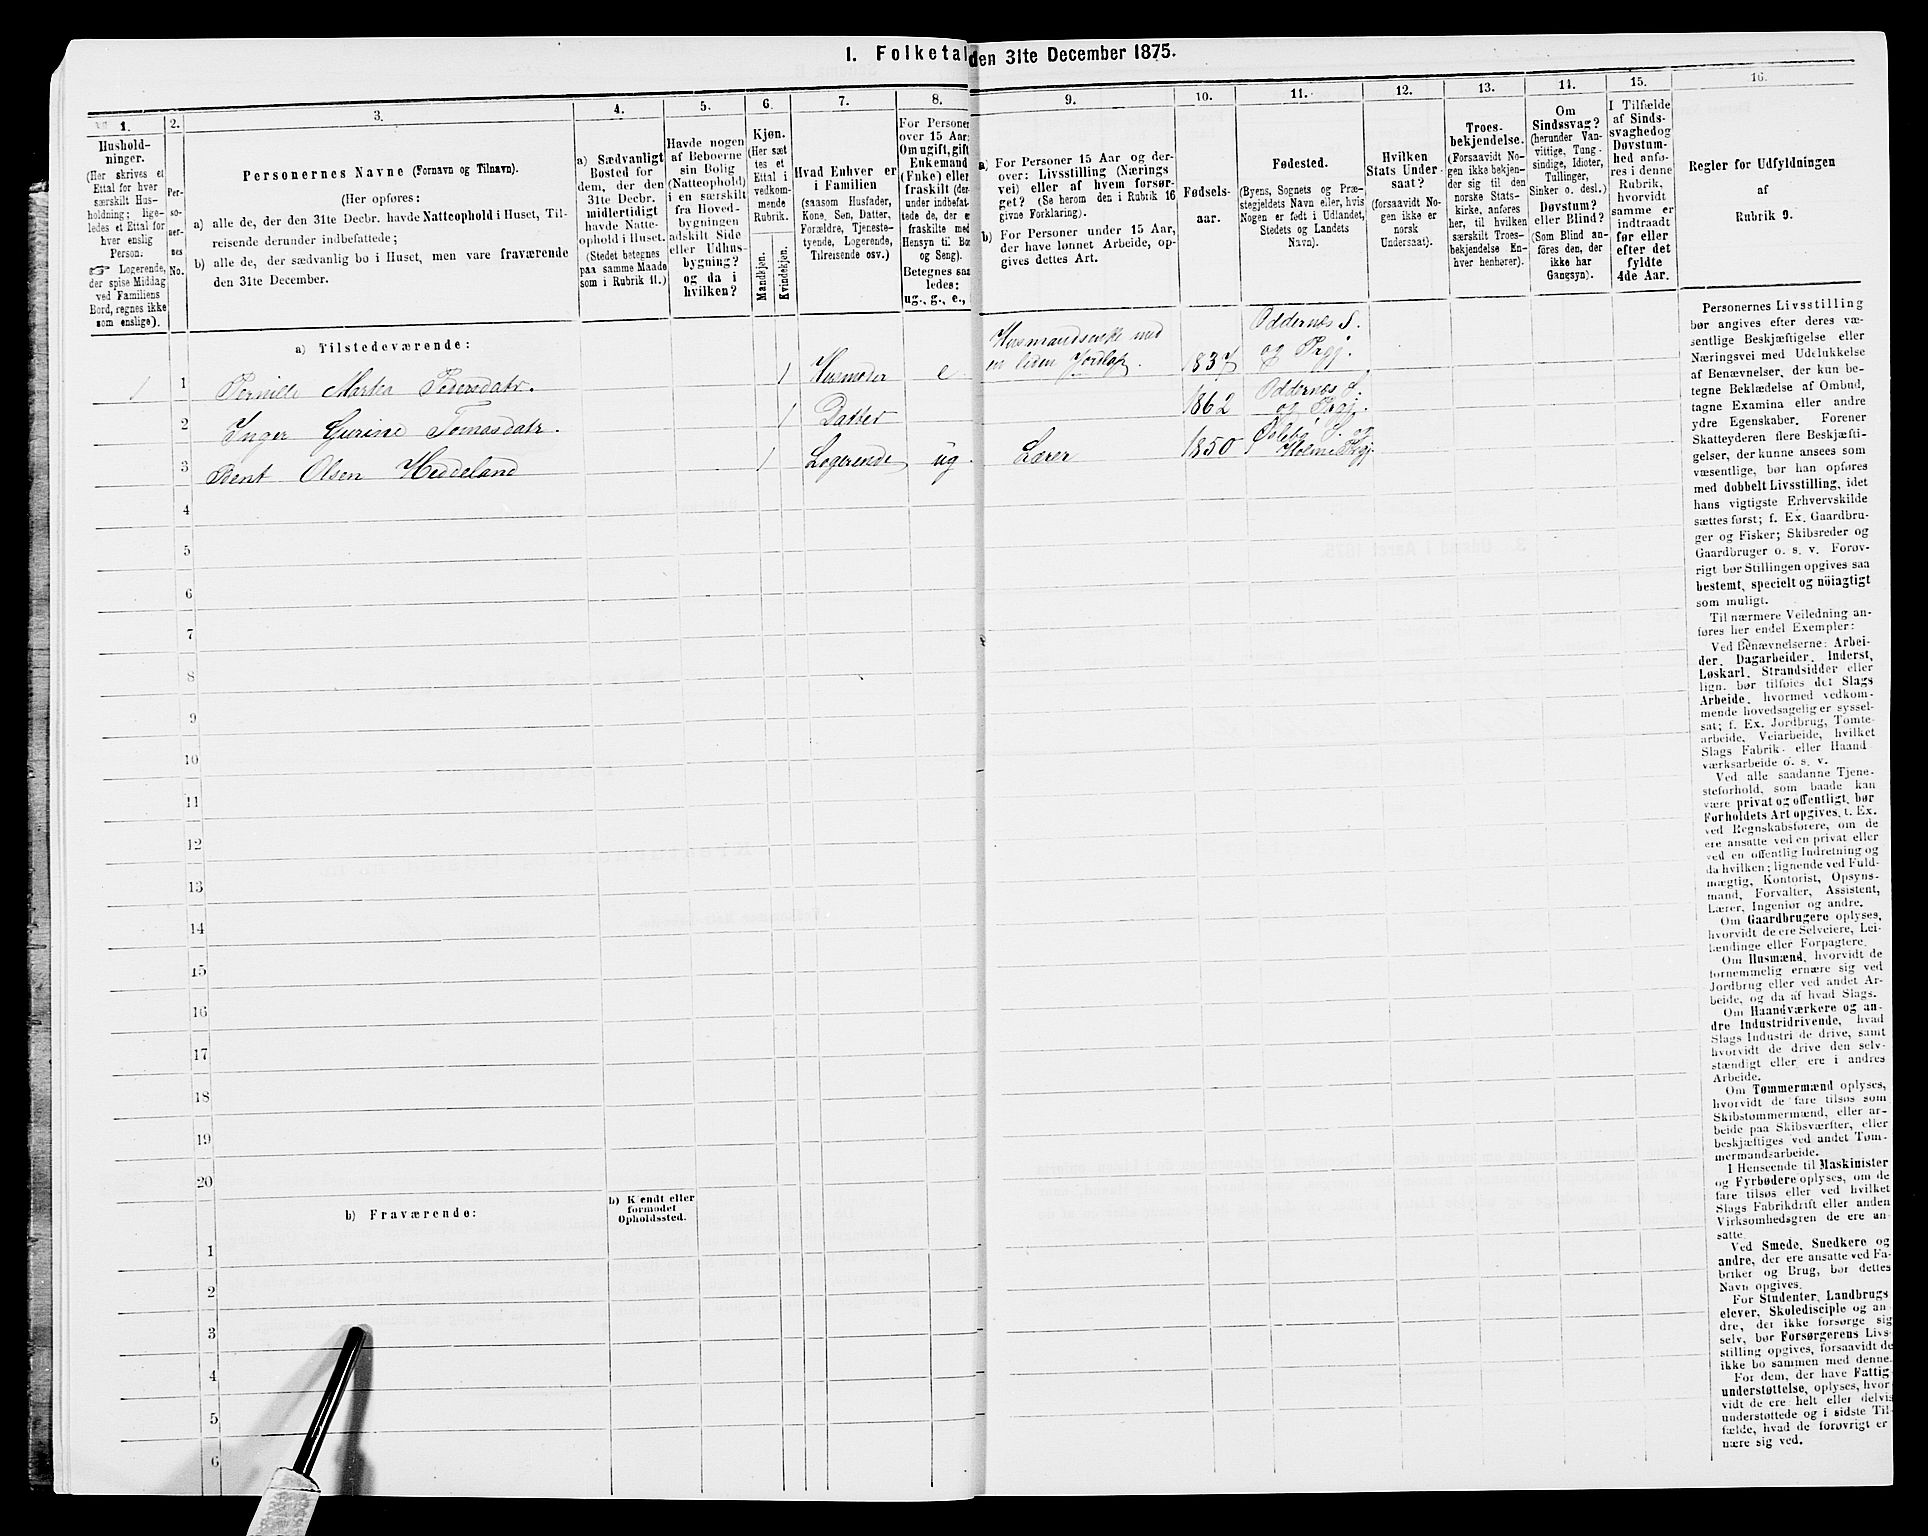 I. Folketal den 31te December 1875.
1. 2. 3. 4. 5. 6. 7. 8. 9. 10. 11. 12. 13. 14. 15. 16.
Hushold-
ninger.
(Her skrives et
Ettal for hver
særskilt Hus-
holdning; lige-
ledes et Ettal for
hver enslig
Person.
☞ Logerende,
der spise Middag
ved Familiens
Bord, regnes ikke
som enslige).
Per-
so-
ner-
nes
No.
Personernes Navne (Fornavn og Tilnavn).
(Her opføres:
a) alle de, der den 31te Decbr. havde Natteophold i Huset, Til-
reisende derunder indbefattede;
b) alle de, der sædvanlig bo i Huset, men vare fraværende
den 31te December.
a) Sædvanligt
Bosted for
dem, der den
31te Decbr.
midlertidigt
havde Natte-
ophold i Huset.
(Stedet betegnes
paa samme Maade
som i Rubrik 11.)
Havde nogen
af Beboerne
sin Bolig
(Natteophold)
i en særskilt
fra Hoved-
bygningen
adskilt Side
eller Udhus-
bygning?
og da i
hvilken?
Kjøn.
(Her sæt
tes et
Ettal i
vedkom-
mende
Rubrik.
Mandkjøn.
Kvindekjøn.
Hvad Enhver er
i Familien
(saasom Husfader,
Kone, Søn, Datter,
Forældre, Tjeneste-
tyende, Logerende,
Tilreisende osv.)
For Personer
over 15 Aar:
Om ugift, gift
Enkemand
(Enke) eller
fraskilt (der-
under indbefat-
tede de, der e
fraskilte med
Hensyn til Bo
og Seng).
Betegnes saa
ledes:
ug., g., e.,
a) For Personer 15 Aar og der-
over: Livsstilling (Nærings
vei) eller af hvem forsør-
get? (Se herom den i Rubrik 16
givne Forklaring).
b) For Personer under 15 Aar,
der have lønnet Arbeide, op-
gives dettes Art.
Fødsels-
aar.
Fødested.
(Byens, Sognets og Præ-
stegjeldets Navn eller, hvis
Nogen er født i Udlandet,
Stedets og Landets
Navn).
Hvilken
Stats Under
saat?
(forsaavidt No-
gen ikke er
norsk
Undersaat).
Troes-
bekjendelse.
(Forsaavidt No-
gen ikke bekjen-
der sig til den
norske Stats-
kirke, anføres
her, til hvilken
særskilt Troes-
bekjendelse En-
hver henhører).
Om
Sindssvag?
(herunder Van-
vittige, Tung-
sindige, Idioter,
Tullinger,
Sinker o. desl.)
Døvstum?
eller Blind?
(Som Blind an-
føres den, der
ikke har
Gangsyn).
I Tilfælde
af Sinds-
svaghed og
Døvstum-
hed anfø-
res i denne
Rubrik,
hvorvidt
samme er
indtraadt
før eller
efter det
fyldte
4de Aar.
Regler for Udfyldningen
af
Rubrik 9.
a) Tilstedeværende:
1 1 Pernille Marta Pedersdatr. 1 Husmoder e Husmandsenke med en liden Jordlap. 1837 Oddernæs S. og Prgj.
2 Inger Gurine Tomasdatr. 1 Datter 1862 Oddernæs S. og Prgj.
3 Bent Olsen Heddeland 1 Logerende ug Lærer 1850 Øslebø S. og Holme Prgj.
4
5
6
7
8
9
10
11
12
13
14
15
16
17
18
19
20
b) Fraværende:
b) Kjendt eller
formodet
Opholdssted.
1
2
3
4
5
6
Personernes Livsstilling
bør angives efter deres væ-
sentlige Beskjæftigelse eller
Næringsvei med Udelukkelse
af Benævnelser, der kun be-
tegne Beklædelse af Ombud,
tagne Examina eller andre
ydre Egenskaber. Forener
Skatteyderen flere Beskjæfti-
gelser, der kunne ansees som
væsentlige, bør han opføres
med dobbelt Livsstilling, idet
hans vigtigste Erhvervskilde
sættes først; f. Ex. Gaardbru-
ger og Fisker; Skibsreder og
Gaardbruger o. s. v. Forøv-
rigt bør Stillingen opgives saa
bestemt, specielt og nöiagtigt
som muligt.
Til nærmere Veiledning an-
føres her endel Exempler:
Ved Benævnelserne: Arbei-
der, Dagarbeider, Inderst,
Løskarl, Strandsidder eller
lign. bør tilføies det Slags
Arbeide, hvormed vedkom-
mende hovedsagelig er syssel-
sat; f. Ex. Jordbrug, Tomte-
arbeide, Veiarbeide, hvilket
Slags Fabrik- eller Haand
værksarbeide o. s. v.
Ved alle saadanne Tjene-
steforhold, som baade kan
være privat og offentligt, bør
Forholdets Art opgives, t. Ex.
ved Regnskabsførere, om de
ere ansatte ved en privat eller
ved en offentlig Indretning og
da hvilken; lignende ved Fuld-
mægtig, Kontorist, Opsyns-
mand, Forvalter, Assistent,
Lærer, Ingeniør og andre.
Om Gaardbrugere oplyses,
hvorvidt de ere Selveiere, Lei-
lændinge eller Forpagtere.
Om Husmænd, hvorvidt de
fornemmelig ernære sig ved
Jordbrug eller ved andet Ar-
beide, og da af hvad Slags.
Om Haandværkere og an-
dre Industridrivende, hvad
Slags Industri de drive, samt
hvorvidt de drive den selv-
stændigt eller ere i andres
Arbeide.
Om Tømmermænd oplyses,
hvorvidt de fare tilsøs som
Skibstømmermænd, eller ar-
beide paa Skibsværfter, eller
beskjæftiges ved andet Tøm-
mermandsarbeide.
I Henseende til Maskinister
og Fyrbødere oplyses, om de
fare tilsøs eller ved hvilket
Slags Fabrikdrift eller anden
Virksomhedsgren de ere an-
satte.
Ved Smede, Snedkere og
andre, der ere ansatte ved Fa-
briker og Brug, bør dettes
Navn opgives.
For Studenter, Landbrugs
elever, Skoledisciple og an-
dre, der ikke forsørge sig
selv, bør Forsørgerens Livs-
stilling opgives, forsaavidt de
ikke bo sammen med denne.
For dem, der have Fattig-
understøttelse, oplyses, hvor-
vidt de ere helt eller delvis
understøttede og i sidste Til-
fælde, hvad de forøvrigt er-
nære sig ved.